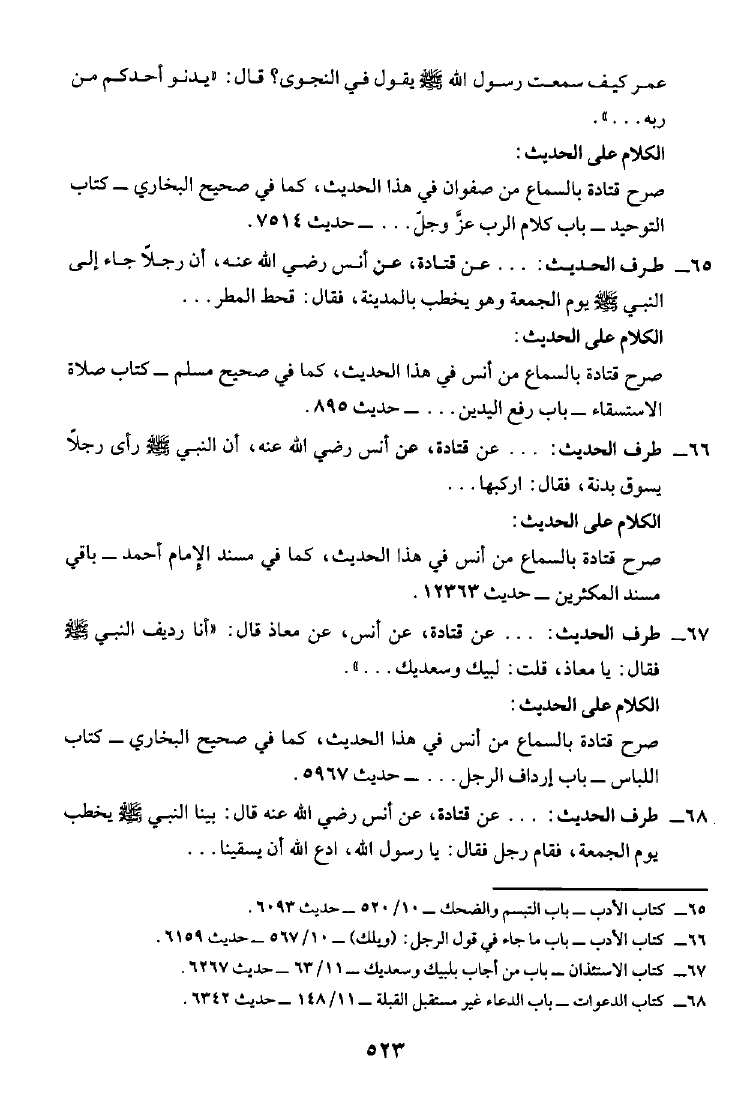 عمر كيف سمعت رسول الله ﷺ يقول في النجوى؟ قال: «يدنو أحدكم من
ربه...».
الكلام على الحديث:
صرح قتادة بالسماع من صفوان في هذا الحديث، كما في صحيح البخاري ــ كتاب
التوحيد ــ باب كلام الرب عزَّ وجلّ... ــ حديث ٧٥١٤.
٦٥ــ طرف الحديث: ... عن قتادة، عن أنس رضي الله عنه، أن رجلاً جاء إلى
النبي ﷺ يوم الجمعة وهو يخطب بالمدينة، فقال: قحط المطر...
الكلام على الحديث:
صرح قتادة بالسماع من أنس في هذا الحديث، كما في صحيح مسلم ــ كتاب صلاة
الاستسقاء ــ باب رفع اليدين... ــ حديث ٨٩٥.
٦٦ــ طرف الحديث: ... عن قتادة، عن أنس رضي الله عنه، أن النبي ﷺ رأى رجلاً
يسوق بدنة، فقال: اركبها...
الكلام على الحديث:
صرح قتادة بالسماع من أنس في هذا الحديث، كما في مسند الإمام أحمد ــ باقي
مسند المكثرين ــ حديث ١٢٣٦٣.
٦٧ــ طرف الحديث: ... عن قتادة، عن أنس، عن معاذ قال: «أنا رديف النبي ﷺ
فقال: يا معاذ، قلت: لبيك وسعديك...».
الكلام على الحديث:
صرح قتادة بالسماع من أنس في هذا الحديث، كما في صحيح البخاري ــ كتاب
اللباس ــ باب إرداف الرجل... ــ حديث ٥٩٦٧.
٦٨ــ طرف الحديث: ... عن قتادة، عن أنس رضي الله عنه قال: بينا النبي ﷺ يخطب
يوم الجمعة، فقام رجل فقال: يا رسول الله، ادع الله أن يسقينا...
٦٥ــ كتاب الأدب ــ باب التبسم والضحك ــ ٥٢٠/١٠ ــ حديث ٦٠٩٣.
٦٦ــ كتاب الأدب ــ باب ما جاء في قول الرجل: (ويلك) ــ ٥٦٧/١٠ ــ حديث ٦١٥٩.
٦٧ــ كتاب الاستئذان ــ باب من أجاب بلبيك وسعديك ــ ٦٣/١١ ــ حديث ٦٢٦٧.
٦٨ــ كتاب الدعوات ــ باب الدعاء غير مستقبل القبلة ــ ١٤٨/١١ ــ حديث ٦٣٤٢.
٥٢٣